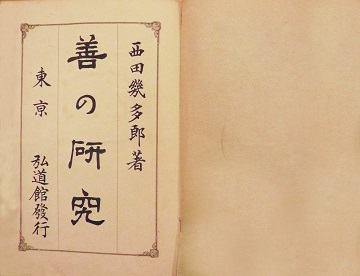 西田幾多郎著
善の研究
東亰
弘道館發行